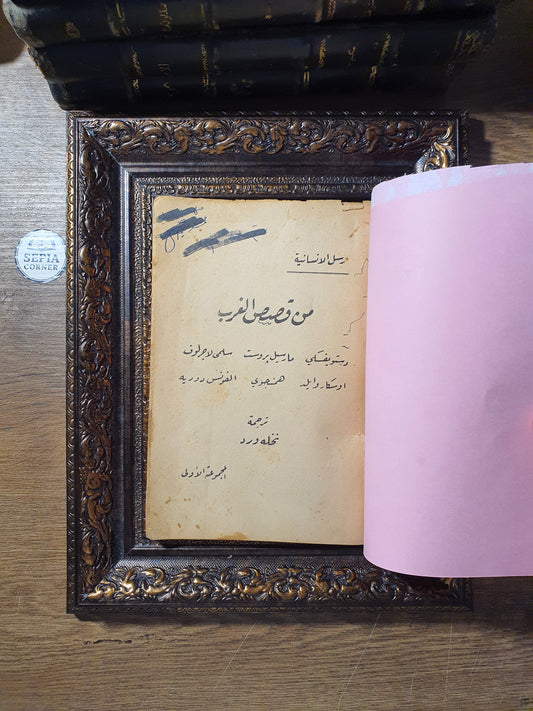 SEPIA
CORNER
رسل الانسانية
من قصص الغرب
وستويفسكي مارسيل بروست سلمى لاجرلوف
اوسكار وايلد همنجوي الفونس دوديه
ترجمة
نخله ورد
المجموعة الأولى